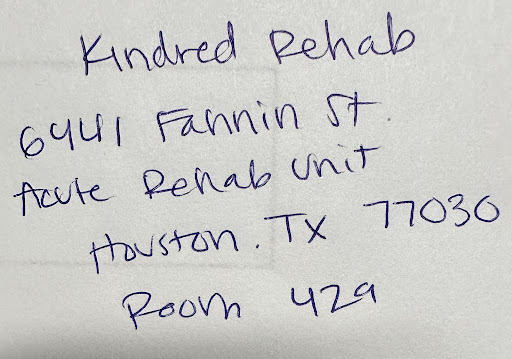 Kindred Rehab
6441 Fannin St.
Acute Rehab Unit
Houston. TX 77030
Room 429